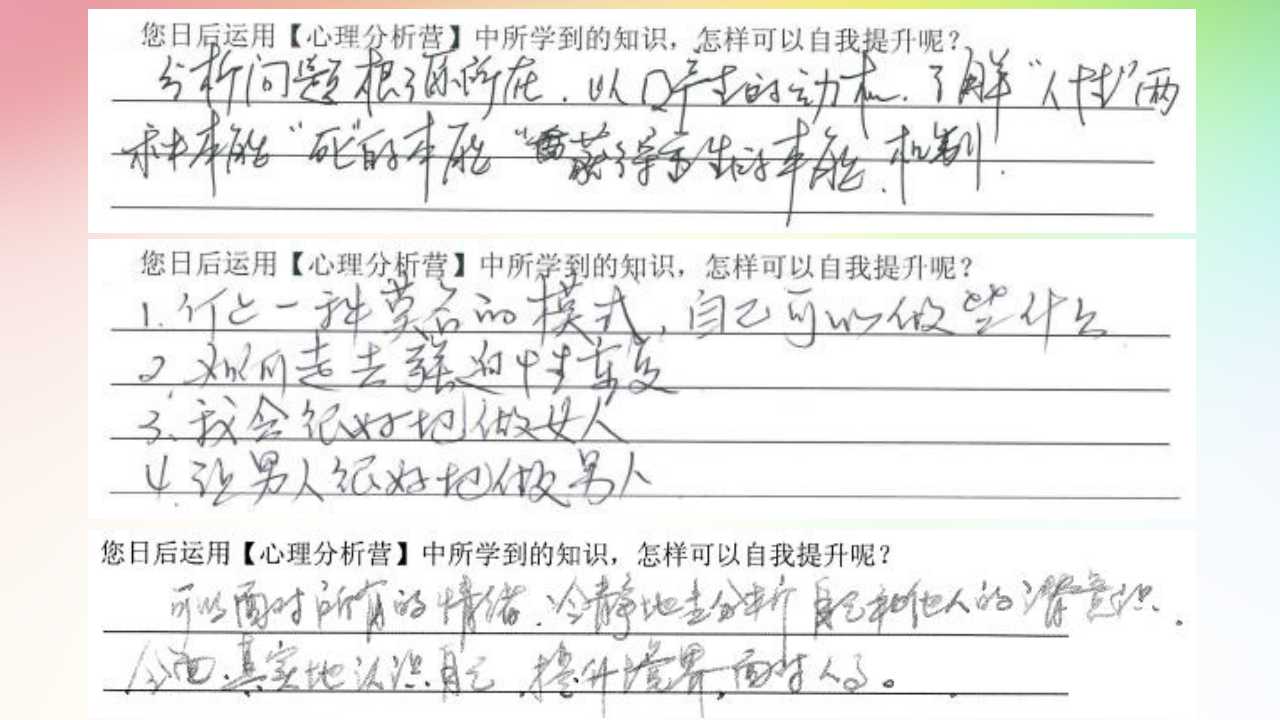 您日后运用【心理分析营】中所学到的知识，怎样可以自我提升呢？
分析问题根源所在．以及产生的动机．了解“人性”两
种本能“死”的本能“获得重生的本能．机制．
您日后运用【心理分析营】中所学到的知识，怎样可以自我提升呢？
1. 一种莫名的模式，自己可以做些什么
2. 如何走去强迫性重复
3. 我会很好地做女人
4. 让男人很好地做男人
您日后运用【心理分析营】中所学到的知识，怎样可以自我提升呢？
可以面对所有的情绪．冷静地去分析自己和他人的潜意识．
全面．真实地认识自己．提升境界．面对人